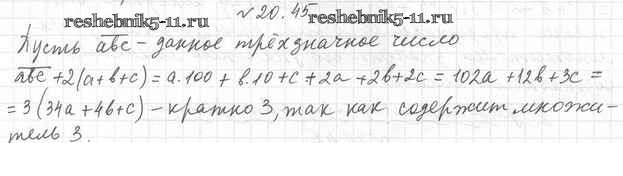 № 20.45
reshebnik5-11.ru reshebnik5-11.ru
Пусть a̅b̅c̅ - данное трёхзначное число
a̅b̅c̅ + 2(a+b+c) = a·100 + b·10 + c + 2a + 2b + 2c = 102a + 12b + 3c =
= 3(34a + 4b + c) - кратно 3, так как содержит множи-
тель 3.